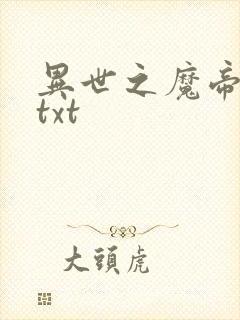 異世之魔帝
txt
大頭虎